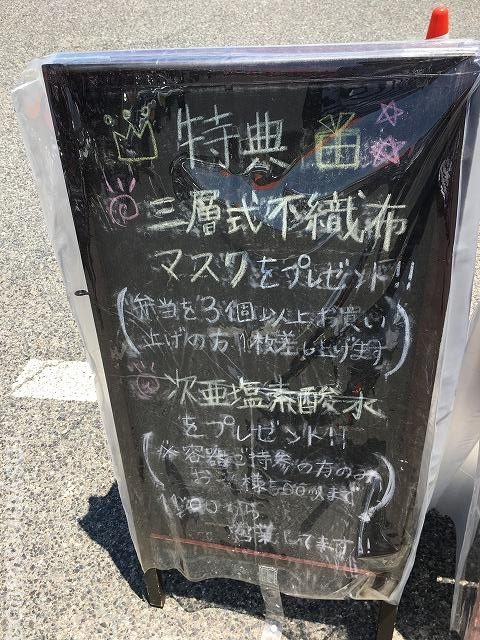 特典
三層式不織布
マスクをプレゼント!!
(弁当を3個以上お買い
上げの方1枚差し上げます)
次亜塩素酸水
をプレゼント!!
(※容器ご持参の方のみ
お一人様500mlまで)
営業してます!!